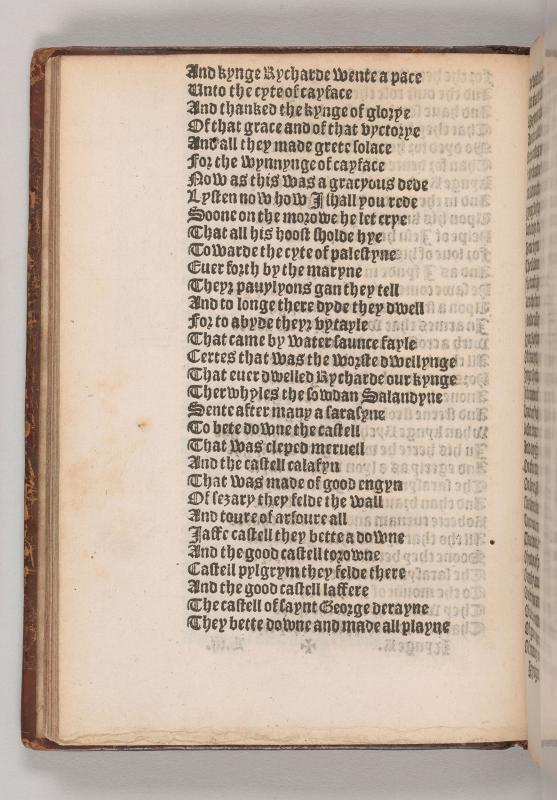 And kynge Rycharde wente a pace
Unto the cyte of cayface
And thanked the kynge of glorye
Of that grace and of that vyctorye
And all they made grete solace
For the wynnynge of cayface
Now as this was a gracyous dede
Lysten now how I shall you rede
Soone on the morowe he let crye
That all his hoost sholde hye
Towarde the cyte of palestyne
Euer forth by the maryne
Theyr pauylyons gan they tell
And to longe there dyde they dwell
For to abyde theyr vytayle
That came by water saunce fayle
Certes that was the worste dwellynge
That euer dwelled Rycharde our kynge
Therwhyles the sowdan Salandyne
Sente after many a sarasyne
To bete downe the castell
That was cleped meruell
And the castell calafyn
That was made of good engyn
Of sezary they felde the wall
And toure of arsoure all
Jaffe castell they bette a downe
And the good castell torowne
Castell pylgrym they felde there
And the good castell laffere
The castell of saynt George derayne
They bette downe and made all playne